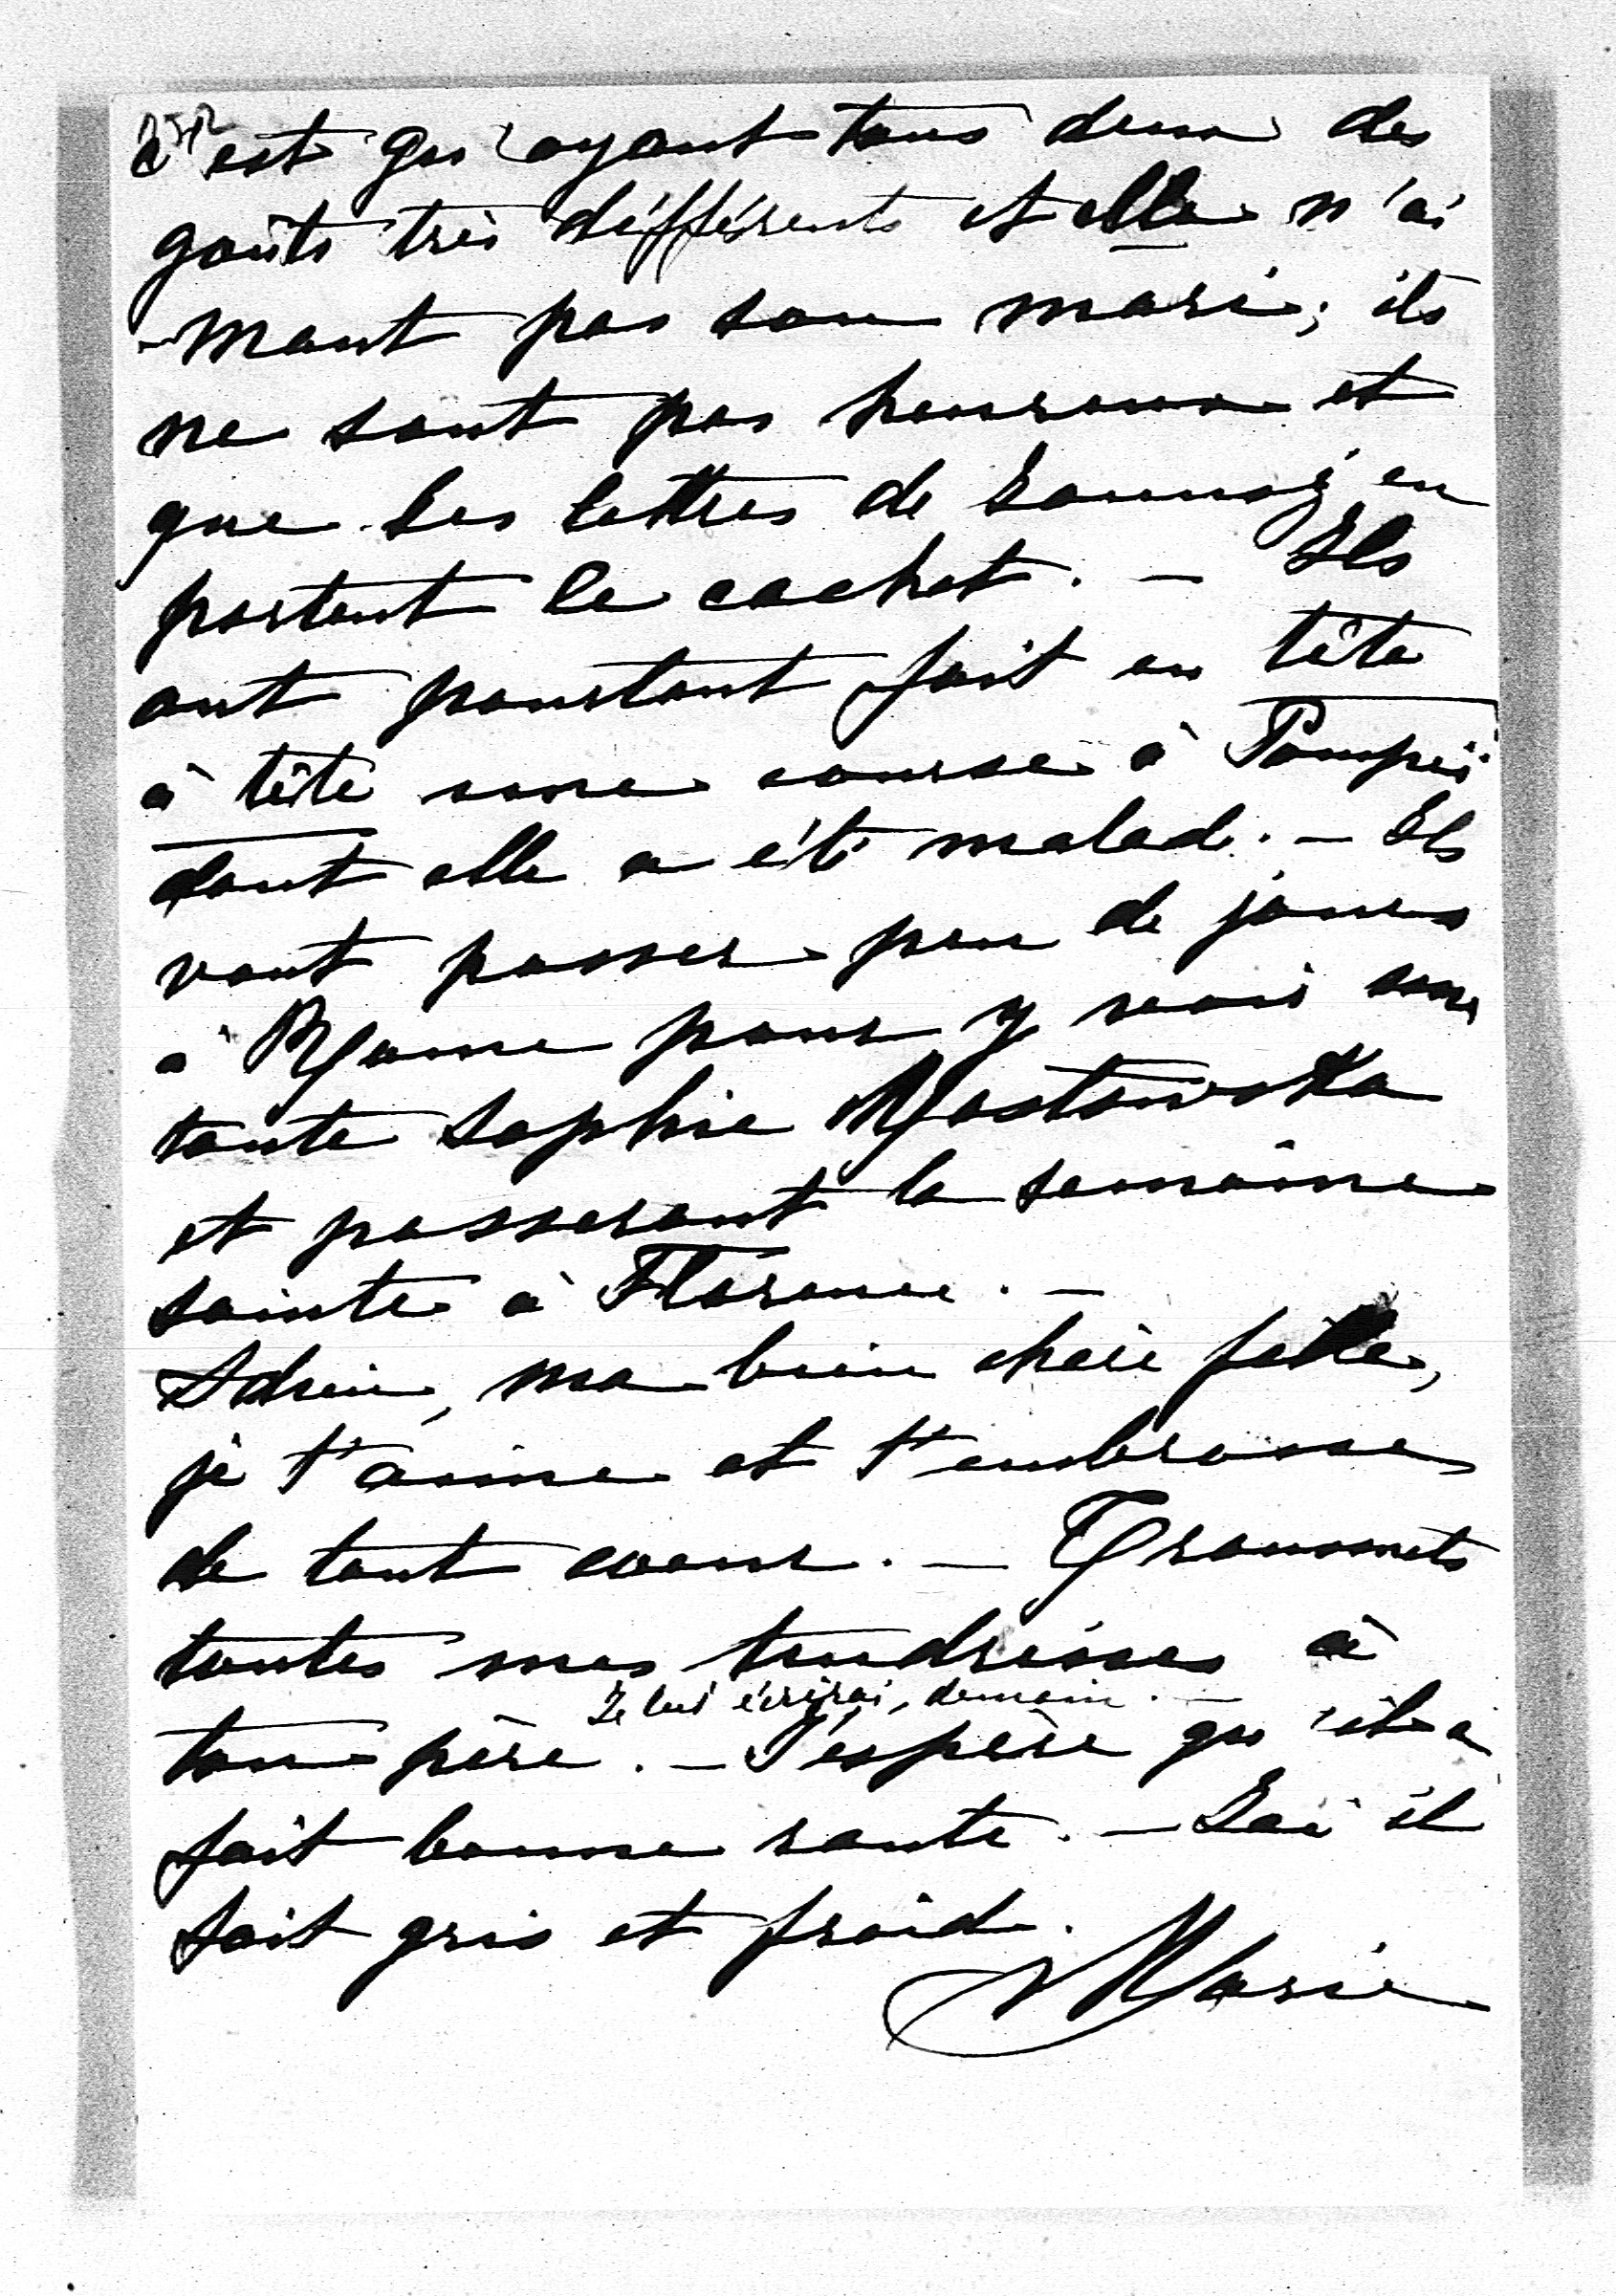 c'est qu'ayant tous deux des
goûts très différents et elle n'ai
-mant pas son mari; ils
ne sont pas heureux et
que les lettres de en
portent le cachet. – Ils
ont pourtant fait en tête
à tête une course à Pompéï
dont elle a été malade. – Ils
vont passer peu de jours
à Rome pour y voir
tante Sophie Mostowska
et passeront la semaine
sainte à Florence. –
Adieu, ma bien chère fille,
je t'aime et t'embrasse
de tout coeur. – Transmets
toutes mes tendresses à
Je lui écrirai, demain. –
ton père. – J'espère qu'il a
fait bonne route. – Ici il
fait gris et froid.
Marie